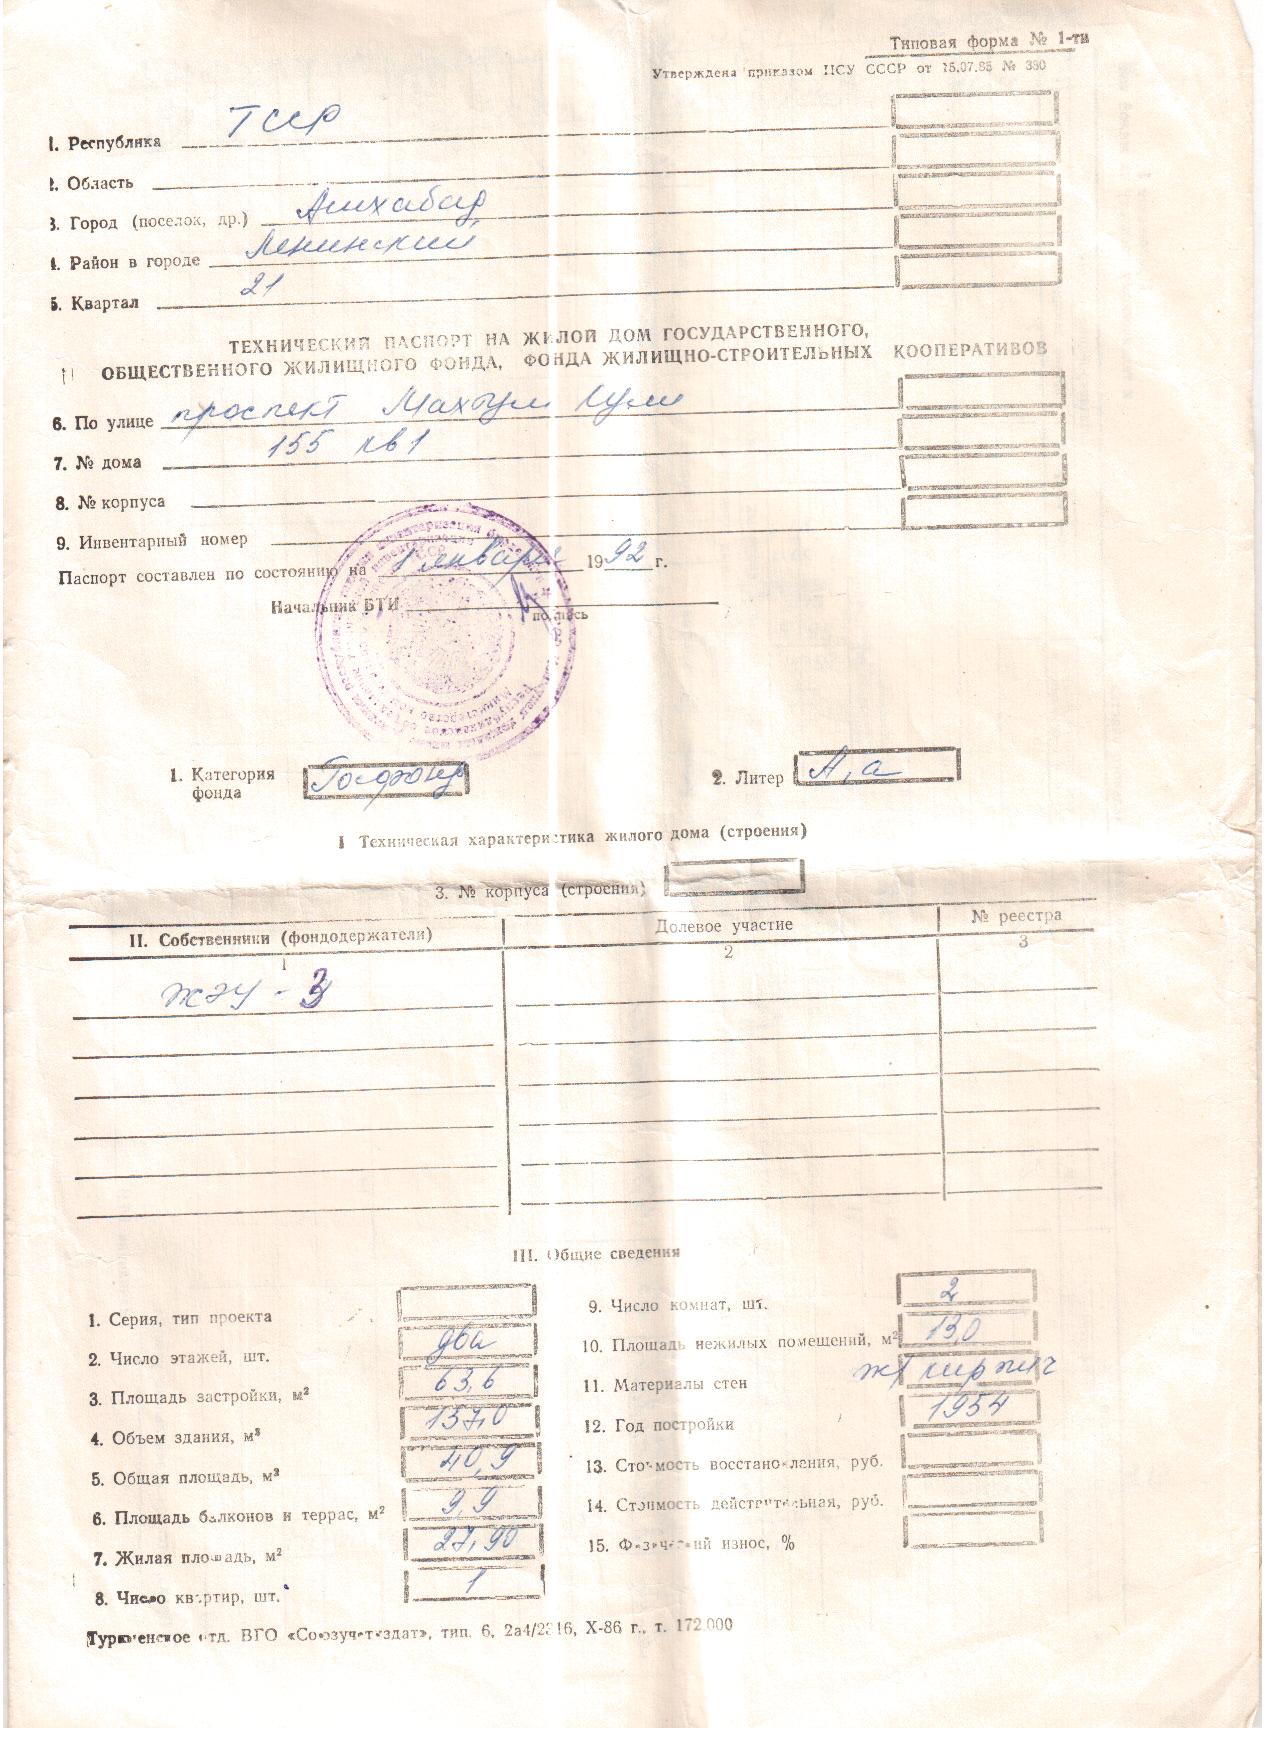 Типовая форма № 1-ти
Утверждена приказом ЦСУ СССР от 15.07.85 № 380
1. Республика ТССР
2. Область
3. Город (поселок, др.) Ашхабад
4. Район в городе Ленинский
5. Квартал 21
ТЕХНИЧЕСКИЙ ПАСПОРТ НА ЖИЛОЙ ДОМ ГОСУДАРСТВЕННОГО,
ОБЩЕСТВЕННОГО ЖИЛИЩНОГО ФОНДА, ФОНДА ЖИЛИЩНО-СТРОИТЕЛЬНЫХ КООПЕРАТИВОВ
6. По улице проспект Махтум Кули
7. № дома 155 кв 1
8. № корпуса
9. Инвентарный номер
Паспорт составлен по состоянию на 1 января 1992 г.
Начальник БТИ
подпись
1. Категория фонда Госфонд
2. Литер А, а
I Техническая характеристика жилого дома (строения)
3. № корпуса (строения)
II. Собственники (фондодержатели) Долевое участие № реестра
1 2 3
ЖЭУ - 3
III. Общие сведения
1. Серия, тип проекта
2. Число этажей, шт. два
3. Площадь застройки, м² 63,6
4. Объем здания, м³ 137,0
5. Общая площадь, м² 40,9
6. Площадь балконов и террас, м² 9,9
7. Жилая площадь, м² 27,90
8. Число квартир, шт. 1
9. Число комнат, шт. 2
10. Площадь нежилых помещений, м² 13,0
11. Материалы стен ж/кирпич
12. Год постройки 1954
13. Стоимость восстановления, руб.
14. Стоимость действительная, руб.
15. Физический износ, %
Туркменское отд. ВГО «Союзучетиздат», тип. 6, 2а4/2316, X-86 г., т. 172.000